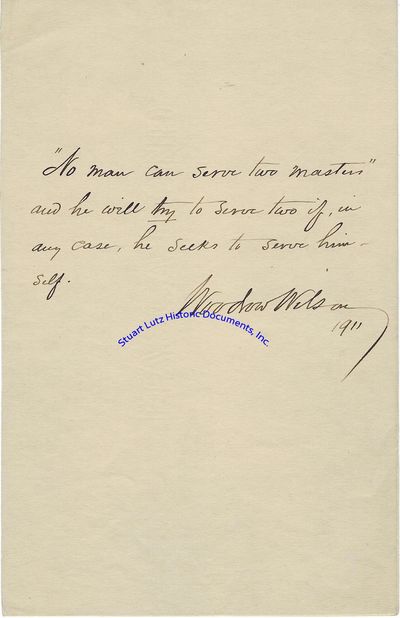 "No man can serve two masters"
and he will try to serve two if, in
any case, he seeks to serve him-
self.
Woodrow Wilson
1911
Stuart Lutz Historic Documents, Inc.